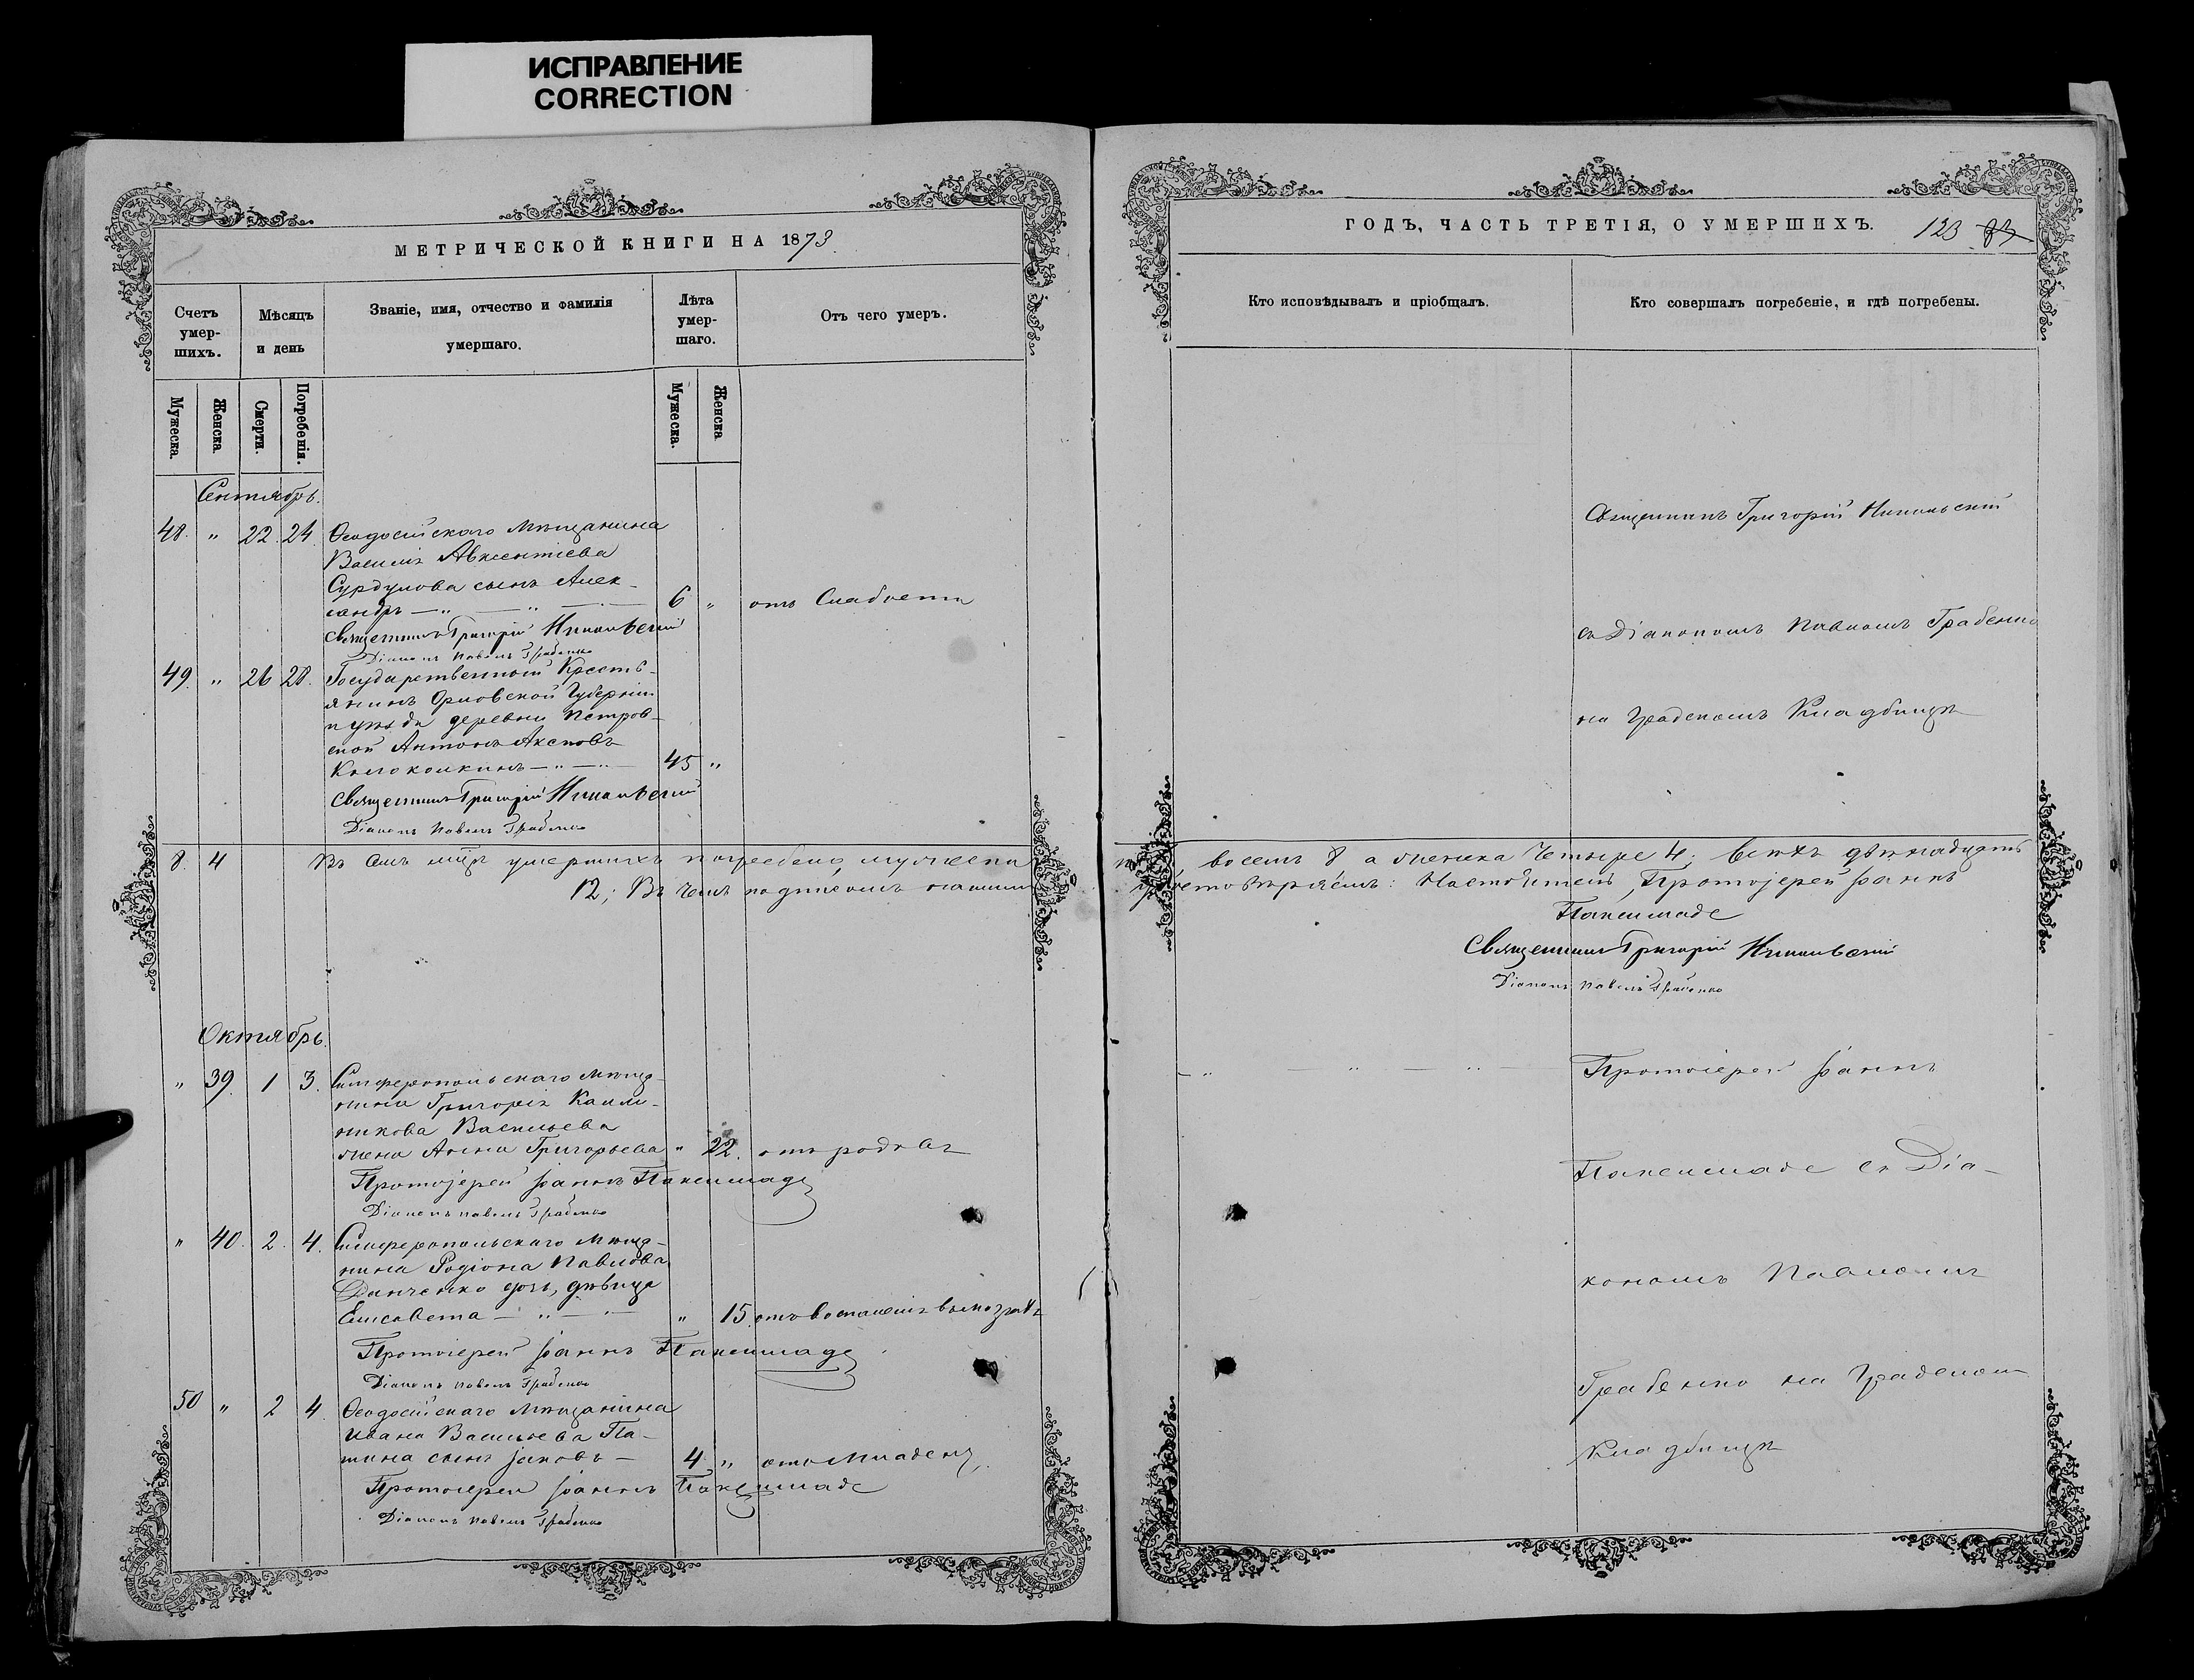 ИСПРАВЛЕНИЕ
CORRECTION
МЕТРИЧЕСКОЙ КНИГИ НА 1873.
Счетъ умер-шихъ.
Мѣсяцъ и день
Званіе, имя, отчество и фамилія умершаго.
Лѣта умер-шаго.
Отъ чего умеръ.
Мужеска.
Женска
Смерти.
Погребенія.
Мужеска.
Женска
Сентябрь.
48. " 22. 24. Ѳеодосійскаго Мѣщанина
Василія Авксентіева
Сурдумова сынъ Алек-
сандръ — " — " — 6 " отъ Слабости
Священникъ Григорій Никольскій
Діаконъ Павелъ Грабенко
49. " 26 28. Государственный Кресть-
янинъ Орловской Губерніи
и уѣзда деревни Петров-
ской Антонъ Аксповъ
Колоколкинъ — " — " 45 "
Священникъ Григорій Никольскій
Діаконъ Павелъ Грабенко
8. 4 Въ семъ мцѣ умершихъ погребено, мужеска
12; Въ чемъ подписомъ нашимъ
Октябрь.
" 39. 1 3. Симферопольскаго Мѣща-
нина Григорія
никова Васильева
жена Анна Григорьева " 22. отъ родовъ
Протоіерей Іоаннъ Паксимаде
Діаконъ Павелъ Грабенко
" 40. 2. 4. Симферопольскаго Мѣща-
нина Родіона Павлова
Данченко дочь, дѣвица
Елисавета — " — " 15. отъ воспаленія въ мозгахъ
Протоіерей Іоаннъ Паксимаде
Діаконъ Павелъ Грабенко
50 " 2 4. Ѳеодосійскаго Мѣщанина
Ивана Васильева Па-
тина сынъ Іаковъ — 4 " отъ Младенч.
Протоіерей Іоаннъ Паксимаде
Діаконъ Павелъ Грабенко
ГОДЪ, ЧАСТЬ ТРЕТІЯ, О УМЕРШИХЪ. 123
Кто исповѣдывалъ и пріобщалъ.
Кто совершалъ погребеніе, и гдѣ погребены.
Священникъ Григорій Никольскій
съ Діакономъ Павломъ Грабенко
на Градскомъ Кладбищѣ
восемь 8 а женска Четыре 4; всѣхъ двѣнадцать
удостовѣряемъ: Настоятель, Протоіерей Іоаннъ
Паксимаде
Священникъ Григорій Никольскій
Діаконъ Павелъ Грабенко
— " " — " — Протоіерей Іоаннъ
Паксимаде съ Діа-
кономъ Павломъ
Грабенко на Градском
Кладбищѣ